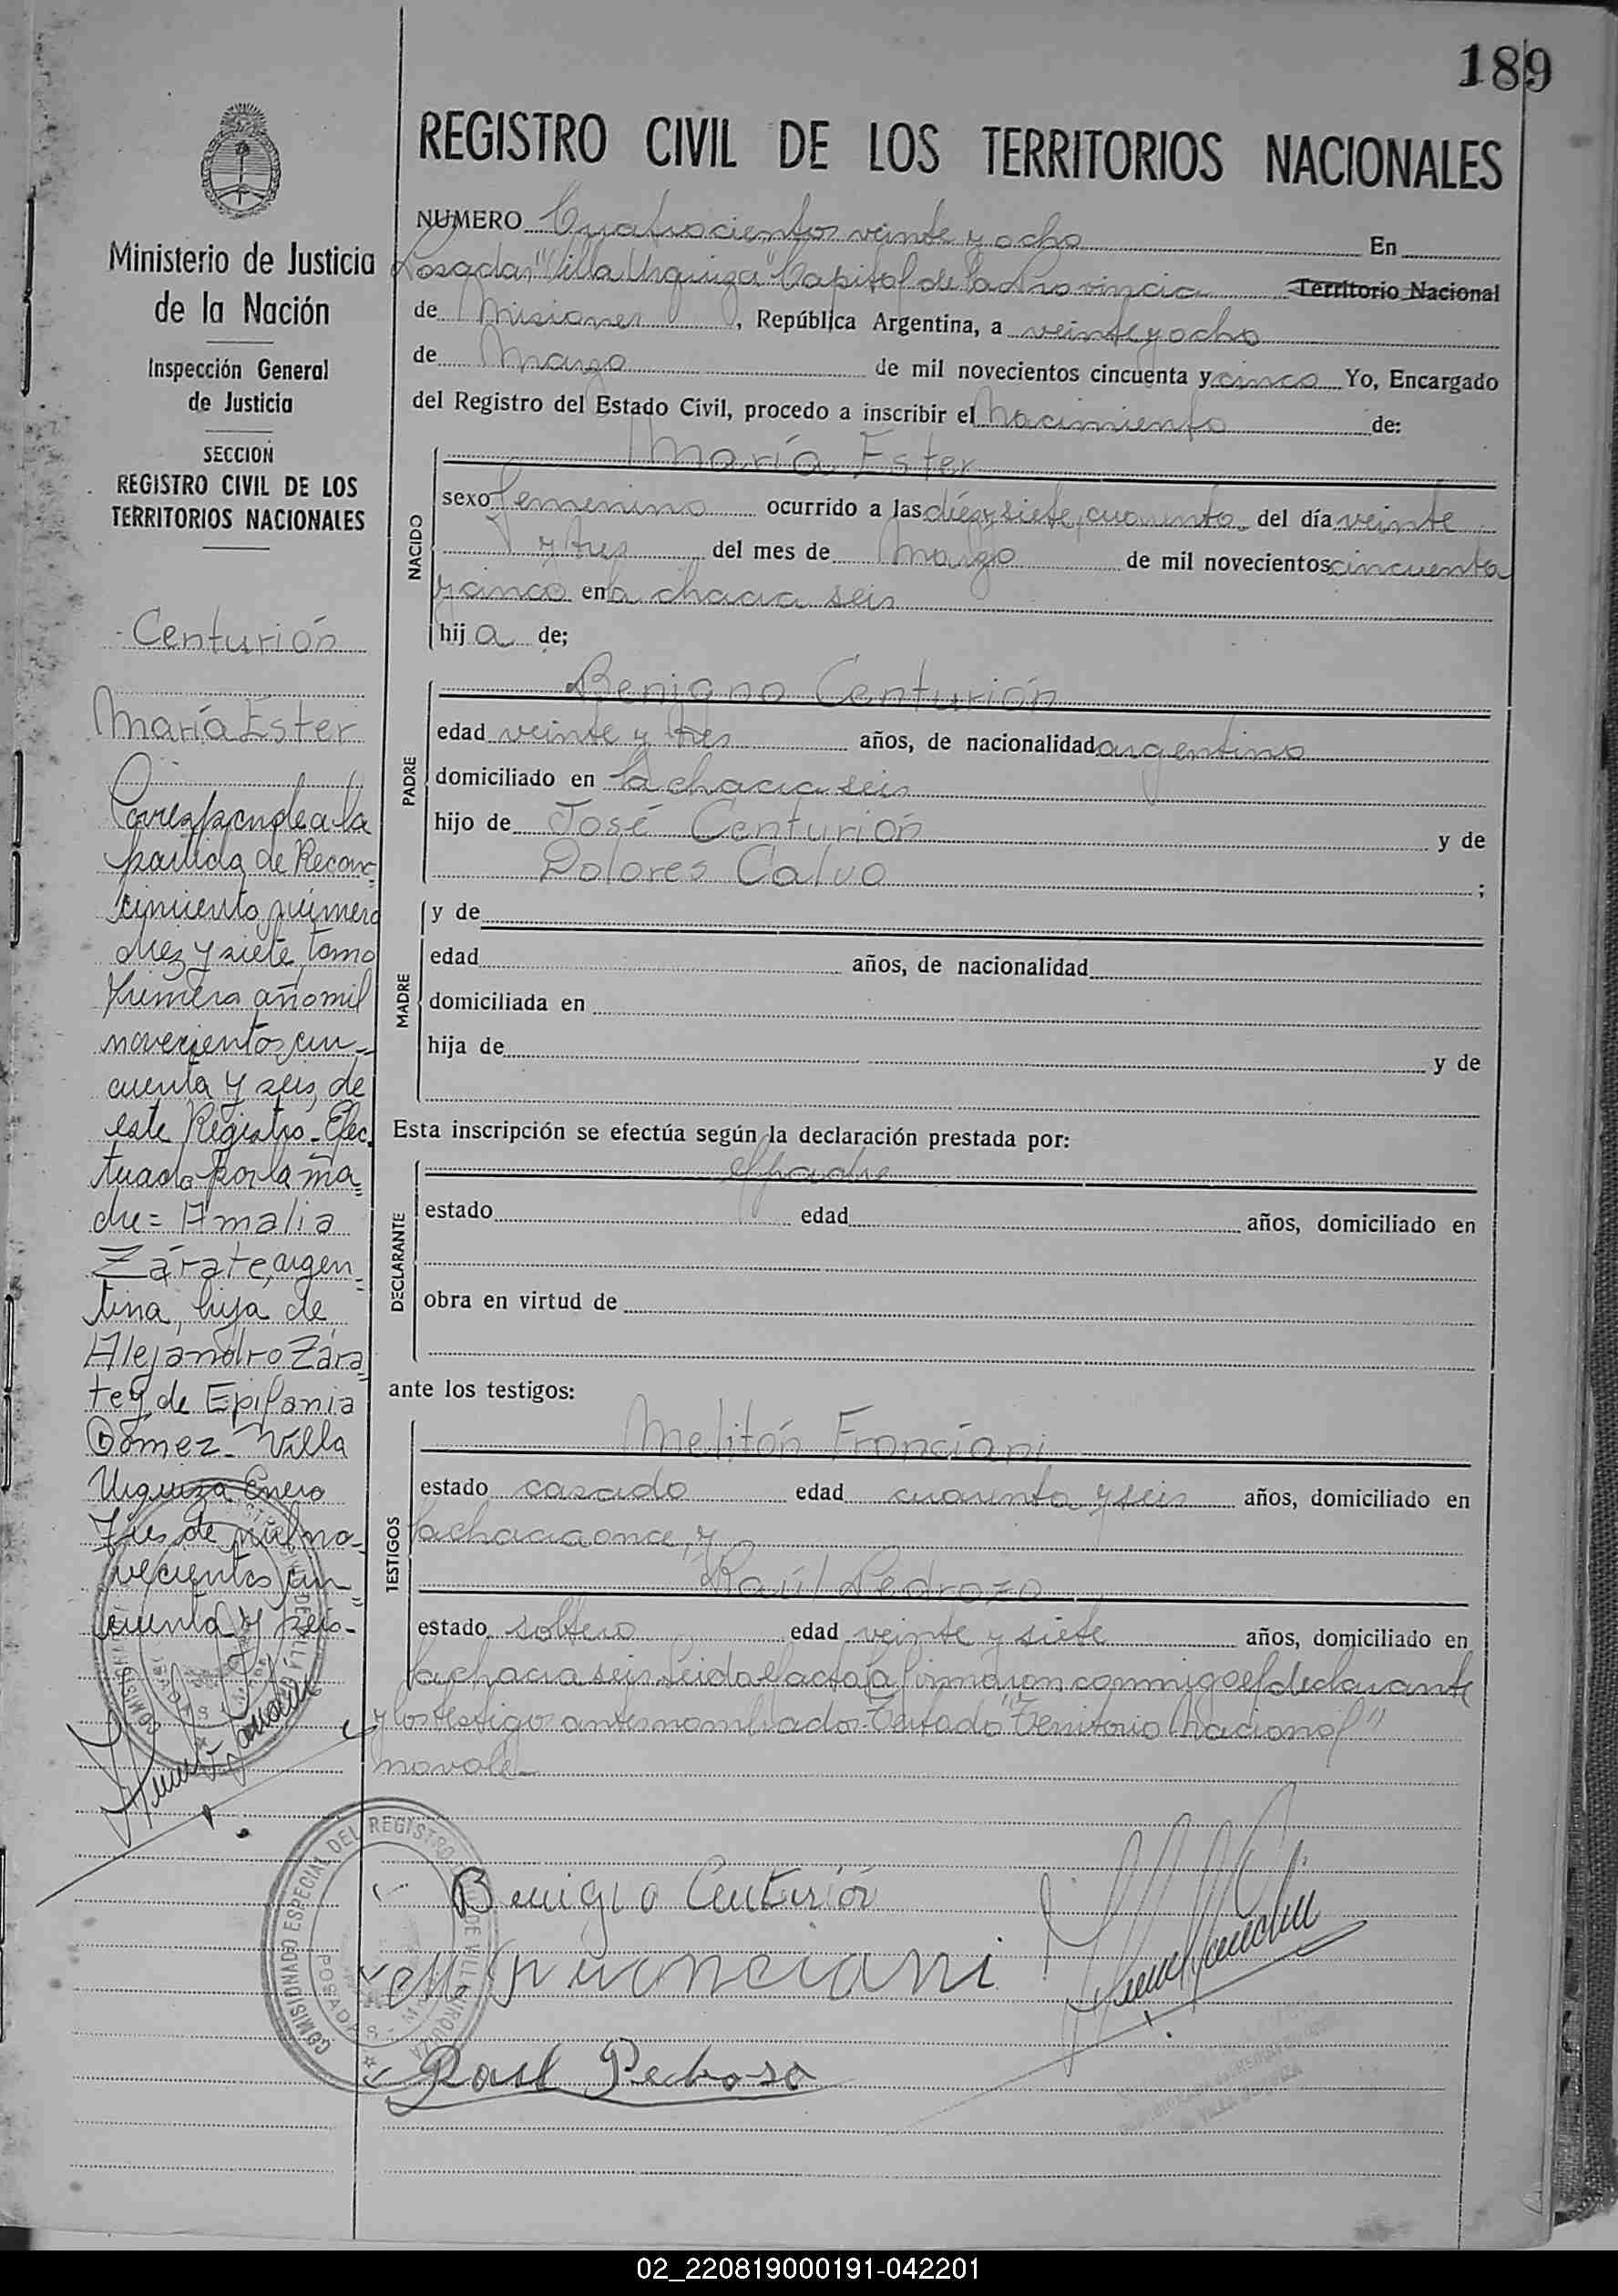 189
REGISTRO CIVIL DE LOS TERRITORIOS NACIONALES
NUMERO Cuatrocientos veinte y ocho En
Posadas, "Villa Urquiza" Capital de la Provincia Territorio Nacional
de Misiones, República Argentina, a veinte y ocho
de Marzo de mil novecientos cincuenta y cinco Yo, Encargado
del Registro del Estado Civil, procedo a inscribir el Nacimiento de:
NACIDO
María Ester
sexo femenino ocurrido a las diez y siete, cuarenta del día veinte
y tres del mes de Marzo de mil novecientos cincuenta
y cinco en la chacra seis
hija de;
PADRE
Benigno Centurión
edad veinte y tres años, de nacionalidad argentino
domiciliado en la chacra seis
hijo de José Centurión y de
Dolores Calvo ;
MADRE
y de
edad años, de nacionalidad
domiciliada en
hija de y de
Esta inscripción se efectúa según la declaración prestada por:
DECLARANTE
el padre
estado edad años, domiciliado en
obra en virtud de
ante los testigos:
TESTIGOS
Melitón Franciani
estado casado edad cuarenta y seis años, domiciliado en
la chacra once, y
Raúl Pedrozo
estado soltero edad veinte y siete años, domiciliado en
la chacra seis. Leida el acta la firmaron conmigo el declarante
y los testigos antes nombrados. Testado "Territorio Nacional"
no vale-
Benigno Centurión
M Franciani
Raul Pedroso
Ministerio de Justicia
de la Nación
Inspección General
de Justicia
SECCION
REGISTRO CIVIL DE LOS
TERRITORIOS NACIONALES
Centurión
María Ester
Corresponde a la
partida de Recono=
cimiento número
diez y siete, tomo
Primero año mil
novecientos cin=
cuenta y seis, de
este Registro- Efec=
tuado por la ma=
dre= Amalia
Zárate, argen=
tina, hija de
Alejandro Zára=
te y de Epifania
Gómez- Villa
Urquiza Enero
Tres de mil no=
vecientos cin=
cuenta y seis-
COMISIONADO ESPECIAL DEL REGISTRO DE VILLA URQUIZA
POSADAS
02_220819000191-042201